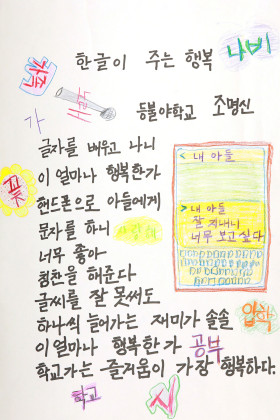 한글이 주는 행복
나비
가족
가
사람
등불야학교 조명신
글자를 배우고 나니
이 얼마나 행복한가
핸드폰으로 아들에게
문자를 하니
너무 좋아
칭찬을 해준다
글씨를 잘 못써도
하나씩 늘어가는 재미가 솔솔
이 얼마나 행복한가
학교가는 즐거움이 가장 행복하다.
꽃
사랑해
< 내 아들
> 내 아들
잘 지내니
너무 보고싶다
입학
공부
학교
시